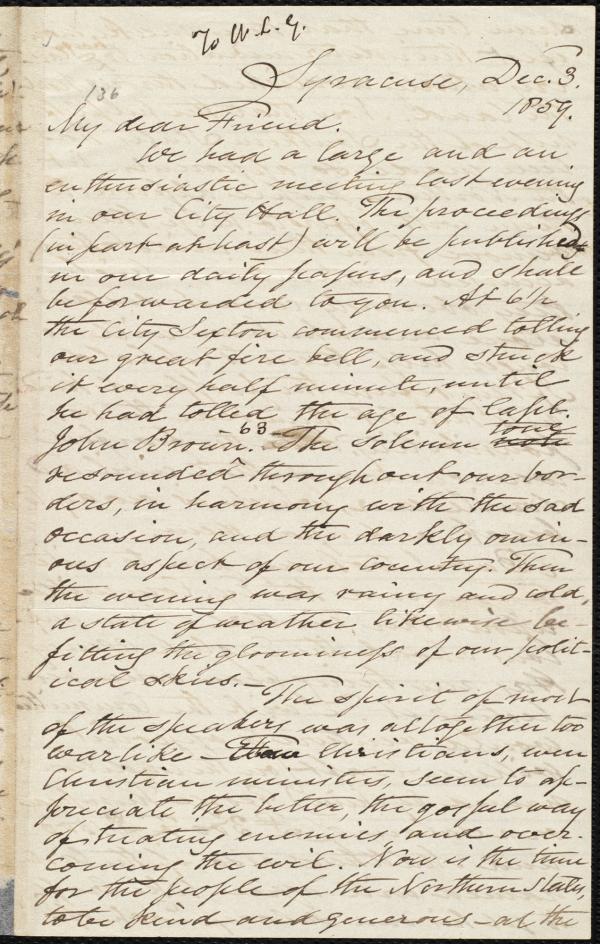 To W. L. G.
Syracuse, Dec. 3.
1859.
136
My dear Friend.
We had a large and an
enthusiastic meeting last evening
in our City Hall. The proceedings
(in part at least) will be published
in our daily papers, and shall
be forwarded to you. At 6 1/2
the City Sexton commenced tolling
our great fire bell, and struck
it every half minute, until
he had tolled the age of Capt.
John Brown. 63 The solemn tone note
resounded throughout our bor-
ders, in harmony with the sad
occasion, and the darkly omin-
ous aspect of our country. Then
the evening was rainy and cold,
a state of weather likewise be-
fitting the gloominess of our polit-
ical skies.—
The spirit of most
of the speakers was altogether too
warlike — Christians, even
Christian ministers, seem to ap-
preciate the better, the gospel way
of treating enemies and over-
coming the evil. Now is the time
for the people of the Northern States,
to be kind and generous — at the